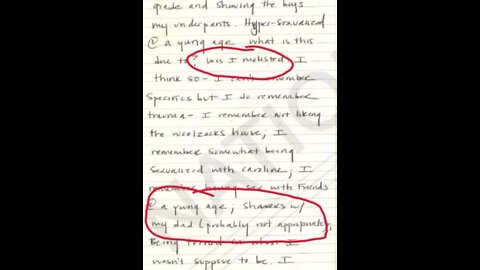 grade and showing the boys
my underpants. Hyper-sexualized
@ a young age what is this
due to? Was I molested. I
think so - I can't remember
specifics but I do remember
trauma - I remember not liking
the woolzacks house; I
remember somewhat being
sexualized with caroline; I
remember having sex with friends
@ a young age; showers w/
my dad (probably not appropriate).
Being turned on when I
wasn't suppose to be. I